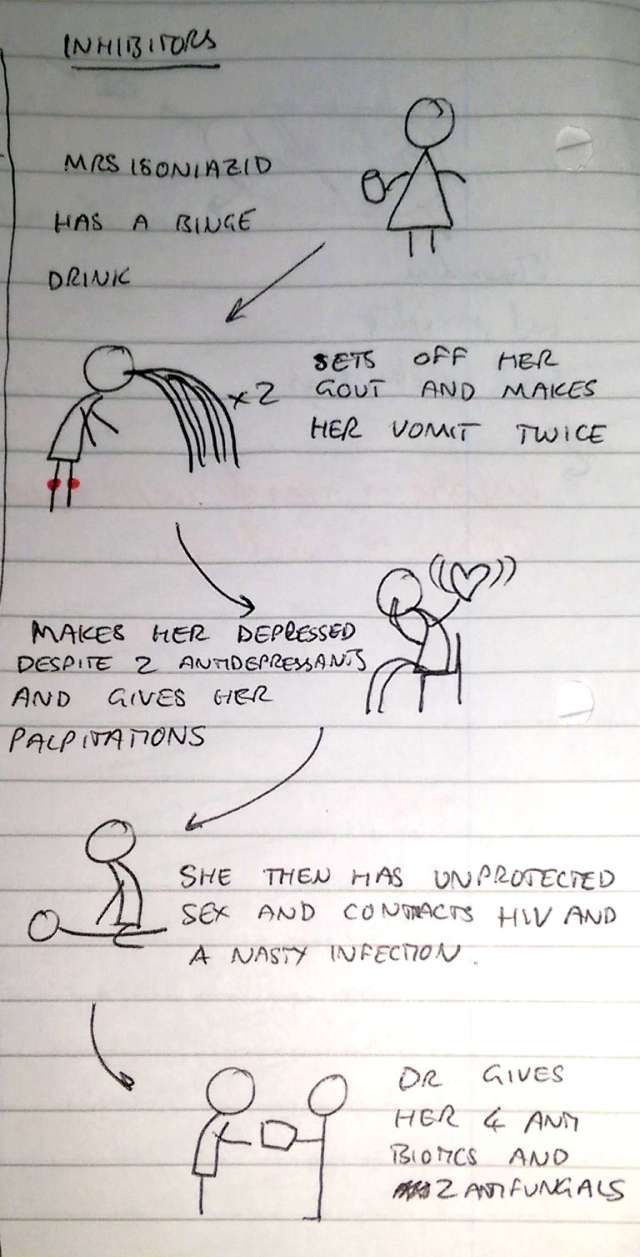 INHIBITORS
MRS ISONIAZID
HAS A BINGE
DRINK
SETS OFF HER
GOUT AND MAKES
HER VOMIT TWICE
x2
MAKES HER DEPRESSED
DESPITE 2 ANTIDEPRESSANTS
AND GIVES HER
PALPITATIONS
SHE THEN HAS UNPROTECTED
SEX AND CONTRACTS HIV AND
A NASTY INFECTION.
DR GIVES
HER 4 ANTI
BIOTICS AND
2 ANTIFUNGALS